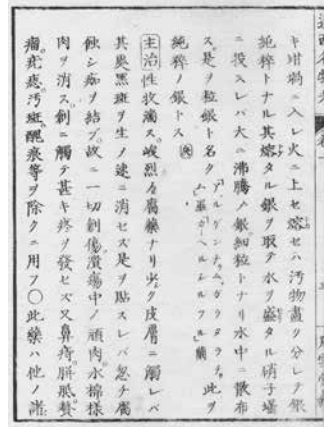 キ坩堝ニ入レ火ニ上セ熔セハ汚物盡ク分レテ銀
純粹トナル其熔タル銀ヲ取テ水ヲ盛タル硝子壜
ニ投スレバ大ニ沸騰ノ銀細粒トナリ水中ニ散布
ス是ヲ粒銀ト名ク アルゲンチュム、ガラヌラチュ 此ヲ
純粹ノ銀トス
主治 性收濇ス峻烈ナル腐藥ナリ少ク皮膚ニ觸レバ
其處黑斑ヲ生ノ速ニ消セス是ヲ貼スレバ忽チ腐
蝕シ痂ヲ結ブ故ニ一切創傷潰瘍中ノ頑肉水棉様
肉ヲ消ス創ニ觸テ甚キ疼ヲ發セズ又鼻痔胼胝贅
瘤疣痣汚斑醜痕等ヲ除クニ用フ〇此藥ハ他ノ諸